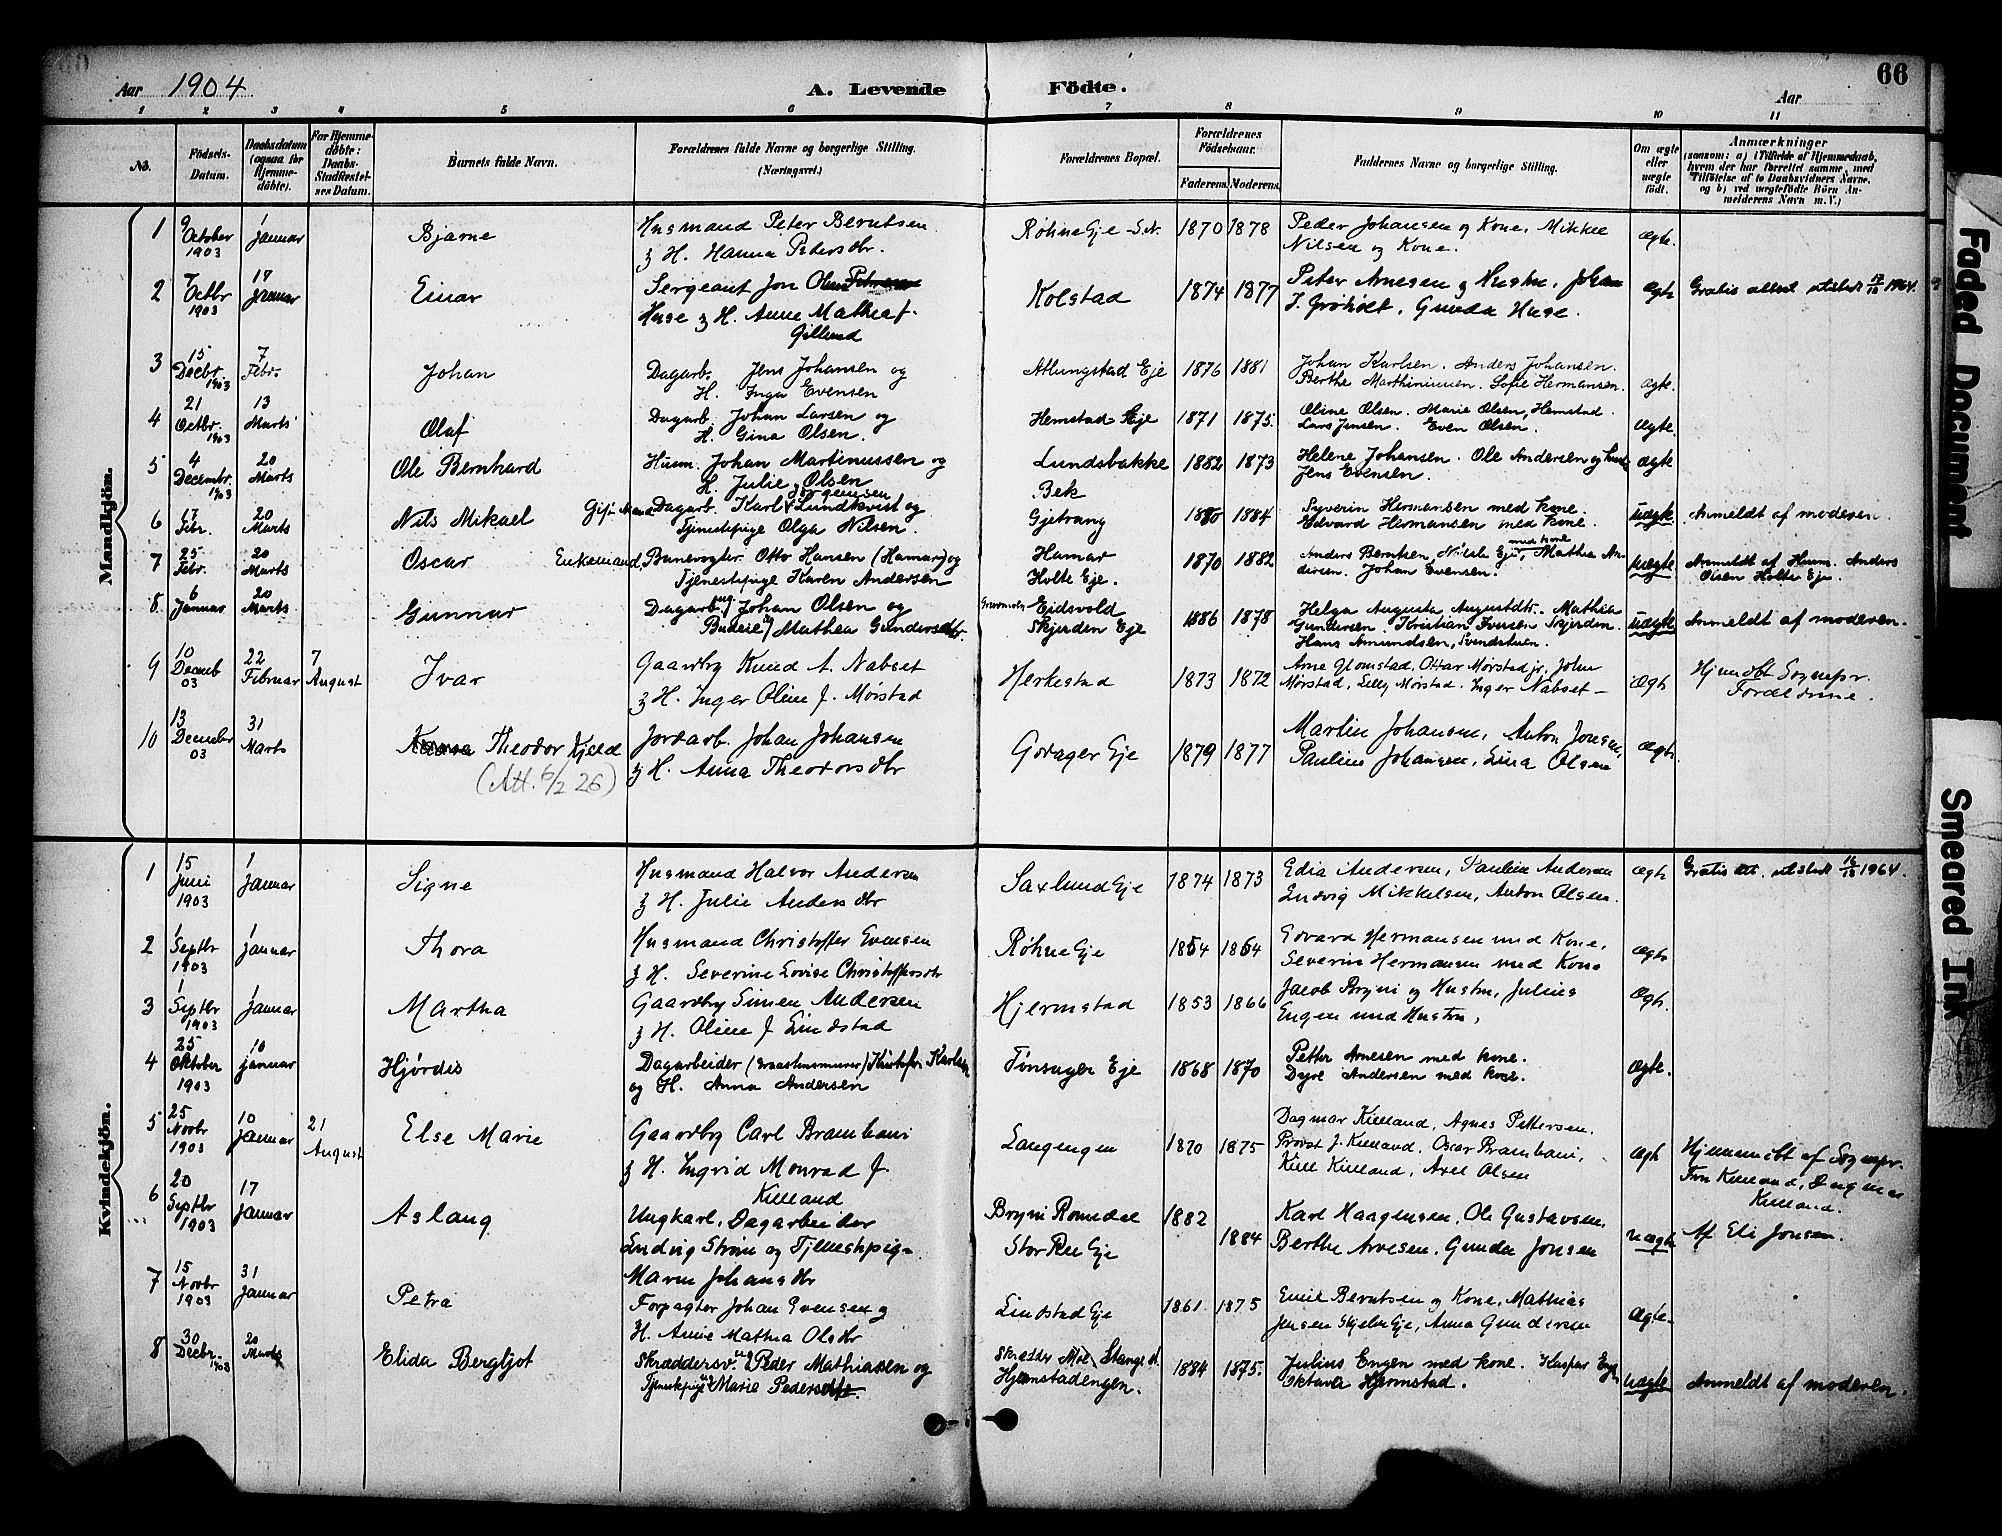 66
Aar 1904
A. Levende Födte.
Aar
1 2 3 4 5 6 7 8 9 10 11
No.
Födsels-Datum.
Daabsdatum (ogsaa for Hjemmedöbte).
For Hjemmedöbte: Daabs-Stadfæstelses Datum.
Barnets fulde Navn.
Forældrenes fulde Navne og borgerlige Stilling. (Næringsvei.)
Forældrenes Bopæl.
Forældrenes Födselsaar.
Faderens. Moderens.
Faddernes Navne og borgerlige Stilling.
Om ægte eller uægte födt.
Anmærkninger
(saasom: a) i Tilfælde af Hjemmedaab, hvem der har forrettet samme, med Tilföielse af to Daabsvidners Navne, og b) ved uægtefödte Börn Anmelderens Navn m.V.)
Mandkjön.
1 9 October 1903 1 Januar Bjarne Husmand Peter Berntsen
H. Hanna Pedersdtr. Røhne Eje 1870 1878 Peder Johansen og Kone, Mikkel
Nilsen og Kone. Ægte.
2 7 Octbr 1903 17 Januar Einar Sergeant Jon Olsen
Huse H. Anne Mathea J.
Gillund Kolstad 1874 1877 Peter Arnesen Hustru, Johan
Gunda Huse. Ægte Gratis attest utstedt 1964.
3 15 Decbr. 1903 7 Febr. Johan Dagarb. Jens Johansen og
H. Inga Evensen Atlungstad Eje 1876 1881 Johan Karlsen. Anders Johansen.
Berthe Marthinussen. Sofie Hermansen. Ægte.
4 21 Octbr. 1903 13 Marts Olaf Dagarb. Johan Larsen og
H. Gina Olsen. Hemstad Eje 1871 1875. Oline Olsen. Marie Olsen, Hemstad.
Lars Jensen. Even Olsen. Ægte.
5 4 Decembr. 1903 20 Marts Ole Bernhard Husm. Johan Martinussen og
H. Julie Olsen Lundsbakke
Bek 1882 1873 Helene Johansen. Ole Andersen og
Jens Evensen. Ægte
6 17 Febr. 20 Marts Nils Mikael Gift Mand Dagarb. Karl Lundkvist og
Tjenestepige Olga Nilsen. Gjetvang 1880 1884 Syverin Hermansen med kone.
Edvard Hermansen med kone. Uægte. Anmeldt af moderen.
7 25 Febr. 20 Marts Oscar Enkemand, Banevogter Otto Hansen (Hamar) og
Tjenestepige Karen Andersen Hamar
Holte Eje. 1870 1882 Anders Berntsen, Eje, med kone Mathea Andersen. Johan Evensen. Uægte Anmeldt af Husm. Anders
Olsen Holte Eje.
8. 6 Januar 20 Marts Gunnar Dagarb. ug. Johan Olsen og
Budeie Mathea Gundersdtr. Eidsvold
Skjerden Eje 1886 1878 Helga Augusta Augustdtr. Mathea
Gundersen. Kristian Iversen Skjerden.
Hans Amundsen, Svendstuen. Uægte Anmeldt af moderen.
9 10 Decemb 03 22 Februar 7 August Ivar Gaardbr Knud A. Nabset
H. Inger Oline J. Mørstad Herkestad 1873 1872 Arne Glomstad, Ottar Mørstad jr, John
Mørstad, Lilly Mørstad. Inger Nabset Ægte Hjemdbt Sognepr.
Forældrene.
10 13 Decembr 03 31 Marts Theodor Kjeld
(Att. 6/2 26) Jordarb. Johan Johansen
H. Anna Theodorsdtr Godager Eje 1879 1877 Martin Johansen, Anton Jonsen,
Pauline Johansen, Lina Olsen Ægte.
Kvindekjön.
1 15 Juni 1903 1 Januar Signe Husmand Halvor Andersen
H. Julie Andersdtr Saxlund Eje 1874 1873 Edia Andersen, Pauline Andersen
Ludvig Mikkelsen, Anton Olsen. Ægte Gratis att. utstedt 1964.
2 1 Septbr 1903 1 Januar Thora Husmand Christoffer Evensen
H. Severine Lovise Christoffersdtr Røhne Eje 1854 1864 Edvard Hermansen med Kone,
Severin Hermansen med Kone Ægte
3 1 Septbr 1903 1 Januar Martha Gaardbr Simen Andersen
H. Oline J. Lindstad Hjermstad 1853 1866 Jacob Bryni og Hustru, Julius
Engen med Hustru, Ægte.
4 25 Oktober 1903 10 Januar Hjørdis Dagarbeider Kristofer Karlsen
og H. Anna Andersen Tønsager Eje 1868 1870 Petter Arnesen med kone.
Dyre Andersen med kone. Ægte.
5 25 Novbr 1903 10 Januar 21 August Else Marie Gaardbr Carl Brambani
H. Ingrid Monrad J.
Kielland Langengen 1870 1875 Dagmar Kielland, Agnes Pettersen,
Provst J. Kielland, Oscar Brambani,
Kitte Kielland, Axel Olsen Ægte Hjemmedbt af Sognepr.
Frn Kielland, Dagmar
Kielland.
6 20 Septbr 1903 17 Januar Aslaug Ungkarl, Dagarbeider
Ludvig Strøm og Tjenestepige
Maren Johansdtr Bryni Romedal
Stor Ree Eje 1882 1884 Karl Haagensen, Ole Gustavsen,
Berthe Arnesen, Gunda Jonsen Uægte Af Eli Jonsen.
7 15 Novbr 1903 31 Januar Petra Forpagter Johan Evensen
H. Anne Mathea Olsdtr Lindstad Eje 1861 1875 Emil Berntsen og Kone, Mathias
Jensen Skjelve Eje, Anna Gundersen Ægte
8 30 Decbr. 1903 20 Marts Elida Bergljot Skræddersv. ug Peder Mathiassen og
Tjenestepige ug Marie Pedersdtr. Skrædder Moe, Stange st.
Hjemstadengen. 1884 1875. Julius Engen med kone. Kaspar Engen
Oktava Hjermstad. Uægte Anmeldt af moderen.
Faded Document
Smeared Ink